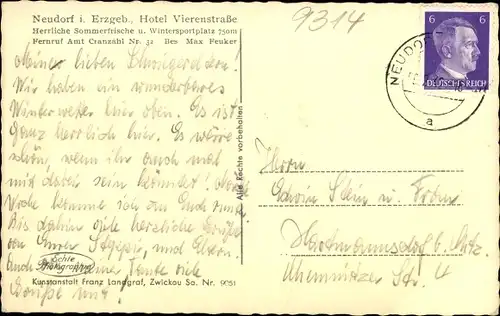 Neudorf i. Erzgeb., Hotel Vierenstraße
Herrliche Sommerfrische u. Wintersportplatz 750m
Fernruf Amt Cranzahl Nr. 32 Bes Max Feuker
9314
6 6
DEUTSCHES REICH
NEUDORF
a
Meine lieben Schwiegereltern!
Wir haben ein wunderbares
Winterwetter hier oben. Es ist
Ganz herrlich hier. Es wäre
schön, wenn ihr auch mal
mit dabei sein könntet!
Woche komme ich zu Euch
Bis dahin viele herzliche Grüße
von Eurer und Eltern.
Auch Tante viele
Grüße mit!
Alle Rechte vorbehalten
Echte Photographie
Kunstanstalt Franz Landgraf, Zwickau Sa. Nr. 9051
Herrn
Erwin Stein u. Frau
Hartmannsdorf b.
Chemnitzer Str. 4